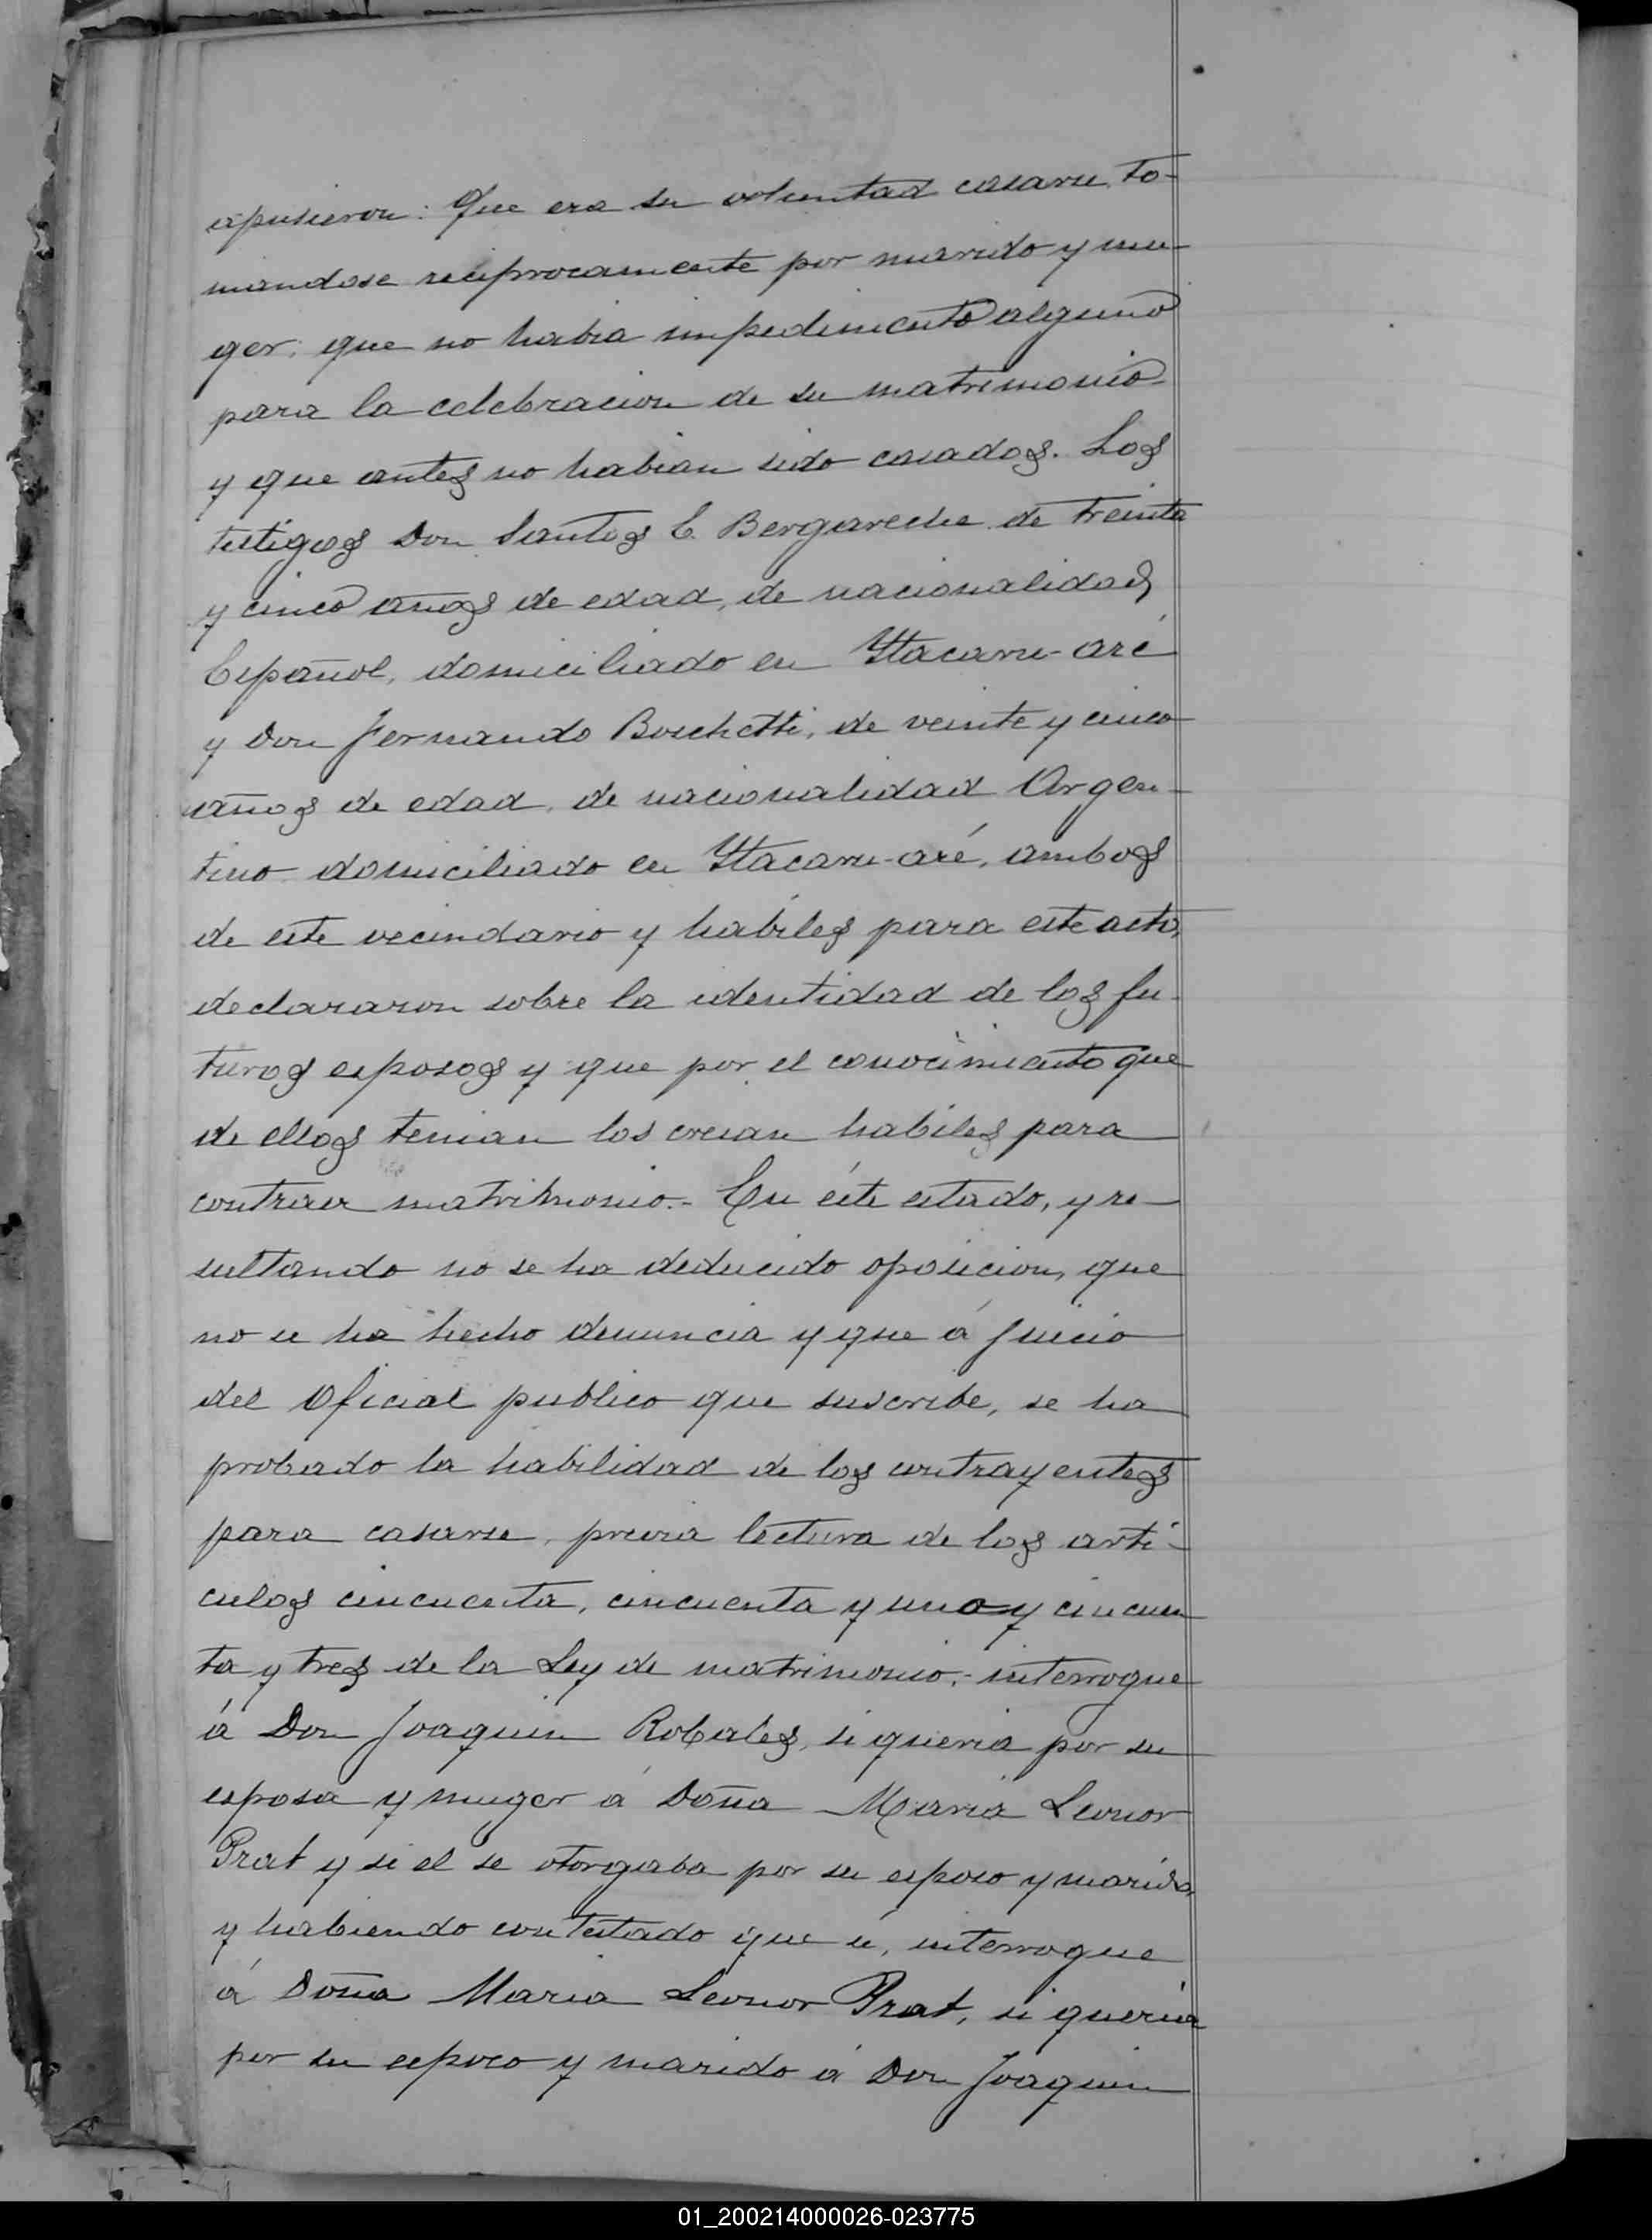 expusieron: Que era su voluntad casarse, to-
mandose reciprocamente por marido y mu-
ger; que no habia impedimento alguno
para la celebracion de su matrimonio
y que antes no habian sido casados. Los
testigos Don Santos E. Bergareche de treinta
y cinco años de edad, de nacionalidad
Español, domiciliado en Ytacarú-aré
y Don Fernando Boschetti, de veinte y cinco
años de edad, de nacionalidad Argen-
tino domiciliado en Ytacarú-aré, ambos
de este vecindario y habiles para este acto,
declararon sobre la identidad de los fu-
turos esposos y que por el conocimiento que
de ellos tenian los creian habiles para
contraer matrimonio.- En éste estado, y re-
sultando no se ha deducido oposicion, que
no se ha hecho denuncia y que á juicio
del Oficial publico que suscribe, se ha
probado la habilidad de los contrayentes
para casarse, previa lectura de los arti-
culos cincuenta, cincuenta y uno y cincuen
ta y tres de la Ley de matrimonio; interrogue
á Don Joaquin Robales, si queria por su
esposa y muger á Doña Maria Leonor
Prat y si el se otorgaba por su esposo y marido,
y habiendo contestado que si, interrogue
á Doña Maria Leonor Prat, si queria
por su esposo y marido á Don Joaquin
01_200214000026-023775